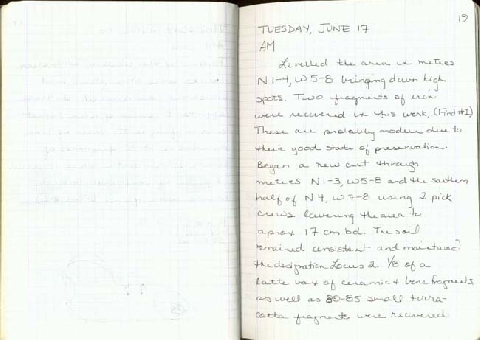 19
TUESDAY, JUNE 17
AM
Levelled the area in meters
N 1-4, W 5-8 bringing down high
spots. Two fragments of
were recovered in this work. (Find #1)
These are probably modern due to
their good state of preservation.
Began a new cut through
meters N 1-3, W5-8 and the southern
half of N4, W 5-8 using 2 pick
crews lowering the area to
aprox 17 cm bd. The soil
remained consistent and maintained
the designation Locus 2. 1/8 of a
latte vax of ceramic & bone fragments
as well as 80-85 small terra-
cotta fragments were recovered.